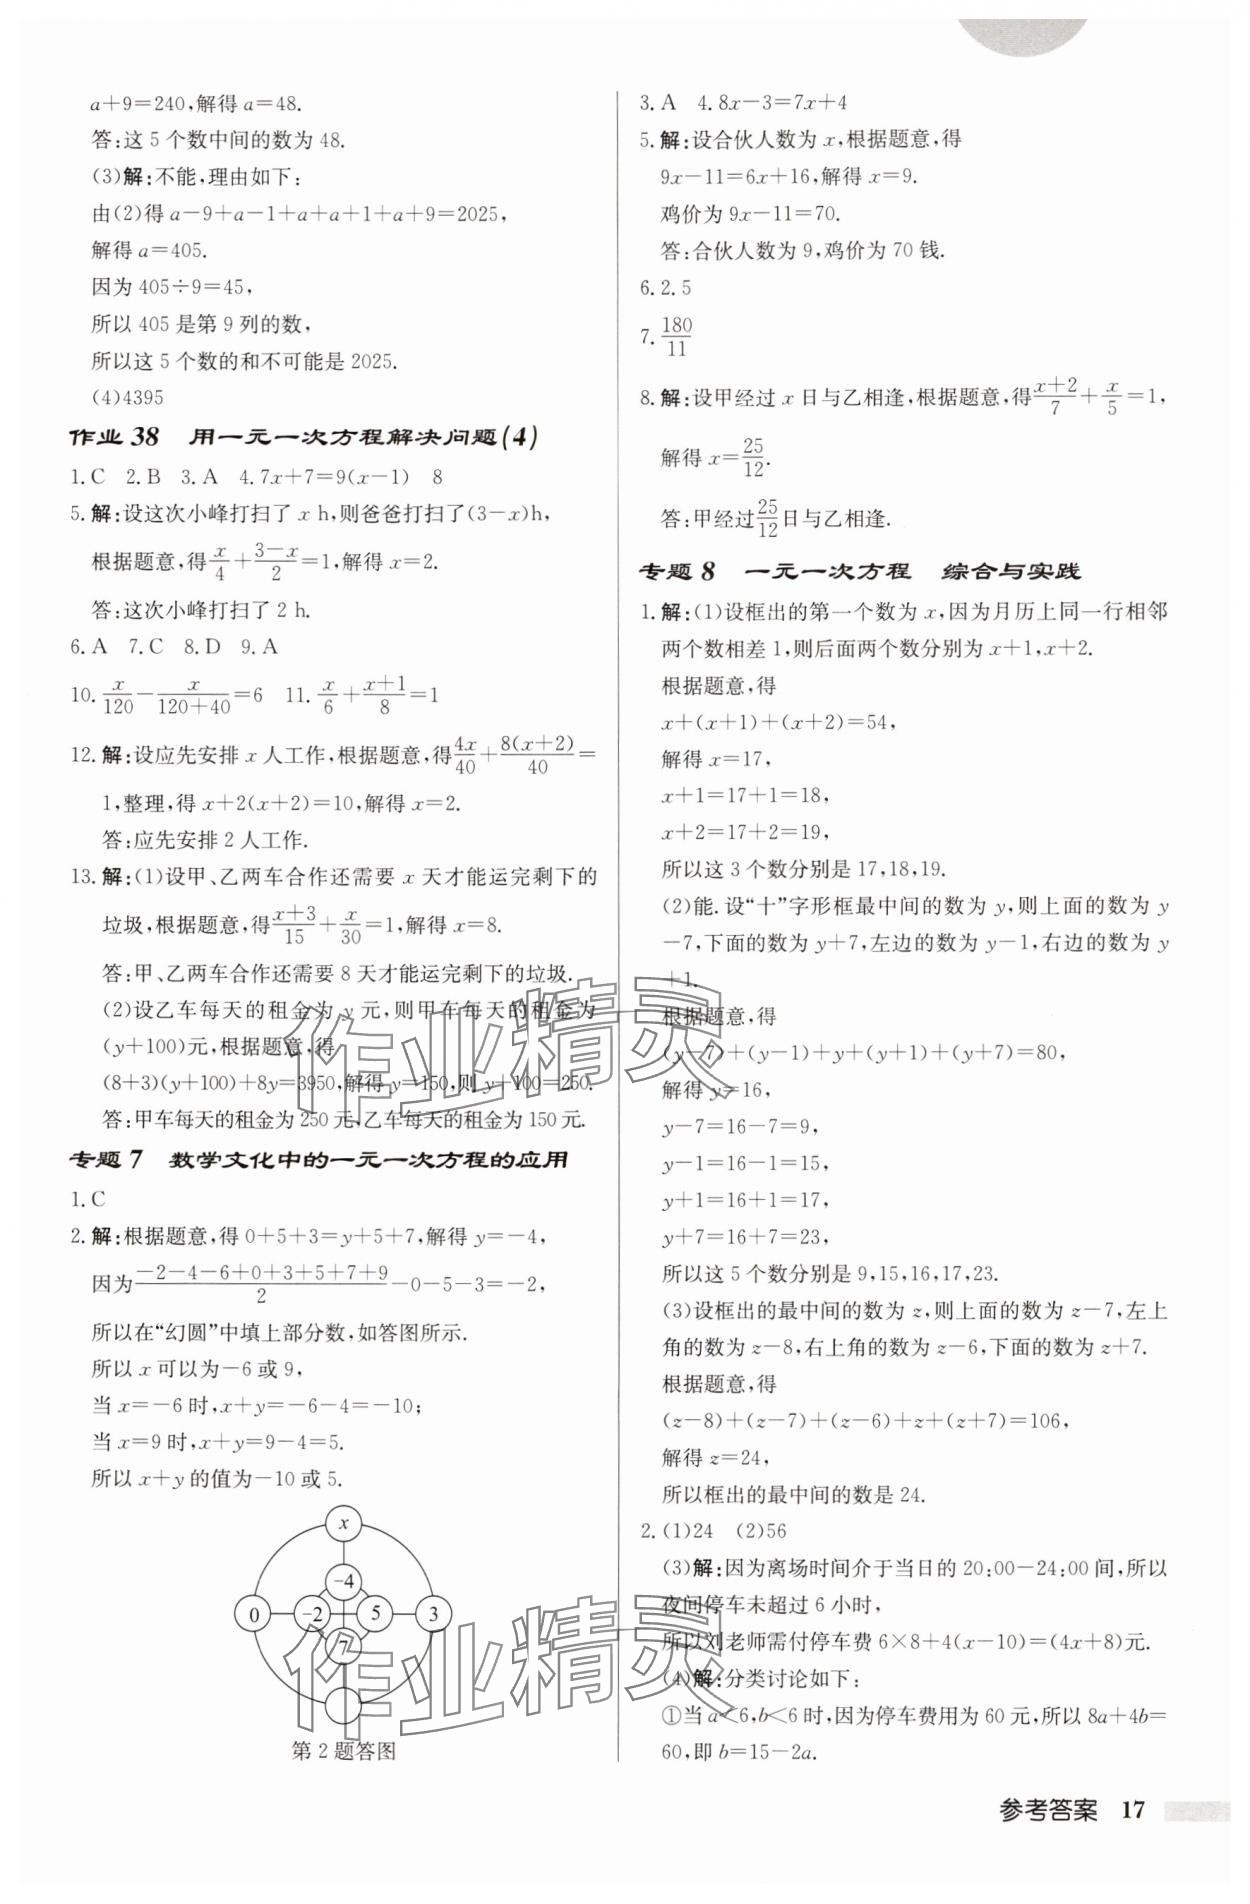 a+9=240,解得 a=48.
答:这 5 个数中间的数为 48.
(3)解:不能,理由如下:
由(2)得 a-9+a-1+a+a+1+a+9=2025,
解得 a=405.
因为 405÷9=45,
所以 405 是第 9 列的数,
所以这 5 个数的和不可能是 2025.
(4)4395
作业 38 用一元一次方程解决问题(4)
1.C 2.B 3.A 4.7x+7=9(x-1) 8
5.解:设这次小峰打扫了 x h,则爸爸打扫了(3-x)h,
根据题意,得x/4+(3-x)/2=1,解得 x=2.
答:这次小峰打扫了 2 h.
6.A 7.C 8.D 9.A
10.x/120-x/(120+40)=6 11.x/6+(x+1)/8=1
12.解:设应先安排 x 人工作,根据题意,得4x/40+8(x+2)/40=
1,整理,得 x+2(x+2)=10,解得 x=2.
答:应先安排 2 人工作.
13.解:(1)设甲、乙两车合作还需要 x 天才能运完剩下的
垃圾,根据题意,得(x+3)/15+x/30=1,解得 x=8.
答:甲、乙两车合作还需要 8 天才能运完剩下的垃圾.
(2)设乙车每天的租金为 y 元,则甲车每天的租金为
(y+100)元,根据题意,得
(8+3)(y+100)+8y=3950,解得 y=150,则 y+100=250.
答:甲车每天的租金为 250 元,乙车每天的租金为 150 元.
专题 7 数学文化中的一元一次方程的应用
1.C
2.解:根据题意,得 0+5+3=y+5+7,解得 y=-4,
因为(-2-4-6+0+3+5+7+9)/2-0-5-3=-2,
所以在“幻圆”中填上部分数,如答图所示.
所以 x 可以为-6 或 9,
当 x=-6 时,x+y=-6-4=-10;
当 x=9 时,x+y=9-4=5.
所以 x+y 的值为-10 或 5.
x
-4
0 -2 5 3
7
第 2 题答图
3.A 4.8x-3=7x+4
5.解:设合伙人数为 x,根据题意,得
9x-11=6x+16,解得 x=9.
鸡价为 9x-11=70.
答:合伙人数为 9,鸡价为 70 钱.
6.2.5
7.180/11
8.解:设甲经过 x 日与乙相逢,根据题意,得(x+2)/7+x/5=1,
解得 x=25/12.
答:甲经过25/12日与乙相逢.
专题 8 一元一次方程 综合与实践
1.解:(1)设框出的第一个数为 x,因为月历上同一行相邻
两个数相差 1,则后面两个数分别为 x+1,x+2.
根据题意,得
x+(x+1)+(x+2)=54,
解得 x=17,
x+1=17+1=18,
x+2=17+2=19,
所以这 3 个数分别是 17,18,19.
(2)能.设“十”字形框最中间的数为 y,则上面的数为 y
-7,下面的数为 y+7,左边的数为 y-1,右边的数为 y
+1.
根据题意,得
(y-7)+(y-1)+y+(y+1)+(y+7)=80,
解得 y=16,
y-7=16-7=9,
y-1=16-1=15,
y+1=16+1=17,
y+7=16+7=23,
所以这 5 个数分别是 9,15,16,17,23.
(3)设框出的最中间的数为 z,则上面的数为 z-7,左上
角的数为 z-8,右上角的数为 z-6,下面的数为 z+7.
根据题意,得
(z-8)+(z-7)+(z-6)+z+(z+7)=106,
解得 z=24,
所以框出的最中间的数是 24.
2.(1)24 (2)56
(3)解:因为离场时间介于当日的 20:00-24:00 间,所以
夜间停车未超过 6 小时,
所以刘老师需付停车费 6×8+4(x-10)=(4x+8)元.
(4)解:分类讨论如下:
①当 a<6,b<6 时,因为停车费用为 60 元,所以 8a+4b=
60,即 b=15-2a.
参考答案 17
作业精灵
作业精灵